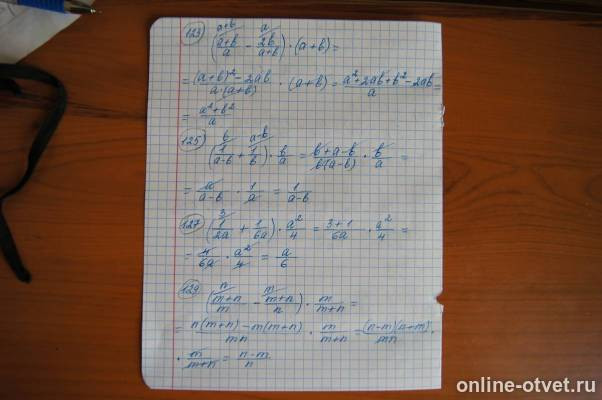 123) ((a+b)/a − 2b/(a+b)) · (a+b) =
= ((a+b)² − 2ab)/(a·(a+b)) · (a+b) = (a²+2ab+b²−2ab)/a =
= (a²+b²)/a
125) (1/(a−b) + 1/b) · b/a = (b+a−b)/(b(a−b)) · b/a =
= a/(a−b) · 1/a = 1/(a−b)
127) (1/2a + 1/6a) · a²/4 = (3+1)/6a · a²/4 =
= 4/6a · a²/4 = a/6
129) ((m+n)/m − (m+n)/n) · m/(m+n) =
= (n(m+n) − m(m+n))/mn · m/(m+n) = ((n−m)(n+m))/mn ·
· m/(m+n) = (n−m)/n
online-otvet.ru